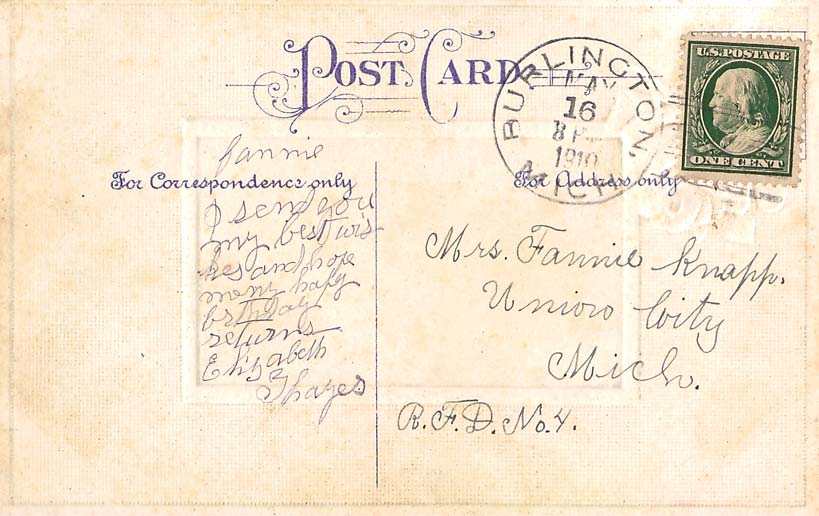 POST CARD
BURLINGTON,
MAY
16
8 P
1910
MICH.
U.S. POSTAGE
ONE CENT
For Correspondence only
For Address only
Fannie
I send you
my best wis
hes and hope
many hapy
brthday
returns
Elizabeth
Mrs. Fannie Knapp.
Union City
Mich.
R.F.D. No. 4.